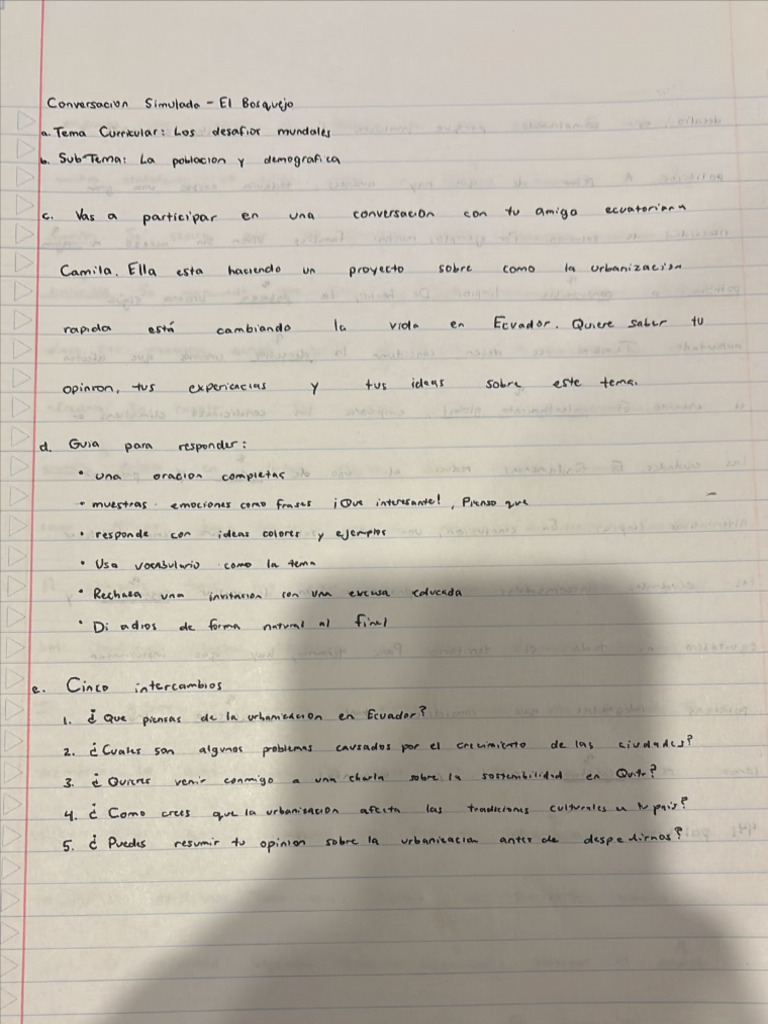 Conversacion Simulada - El Bosquejo
a. Tema Curricular: Los desafios mundales
b. SubTema: La poblacion y demografica
c. Vas a participar en una conversación con tu amiga ecuatoriana
Camila. Ella esta haciendo un proyecto sobre como la urbanizacion
rapida está cambiando la vida en Ecuador. Quiere saber tu
opinion, tus experiencias y tus ideas sobre este tema.
d. Guia para responder:
• una oracion completas
• muestras emociones como frases ¡Que interesante!, Pienso que
• responde con ideas colores y ejemplos
• Usa vocabulario como la tema
• Rechaza una invitacion con una excusa educada
• Di adios de forma natural al final
e. Cinco intercambios
1. ¿Que piensas de la urbanizacion en Ecuador?
2. ¿Cuales son algunos problemas causados por el crecimiento de las ciudades?
3. ¿Quieres venir conmigo a una charla sobre la sostenibilidad en Quito?
4. ¿Como crees que la urbanizacion afecta las tradiciones culturales en tu pais?
5. ¿Puedes resumir tu opinion sobre la urbanizacion antes de despedirnos?